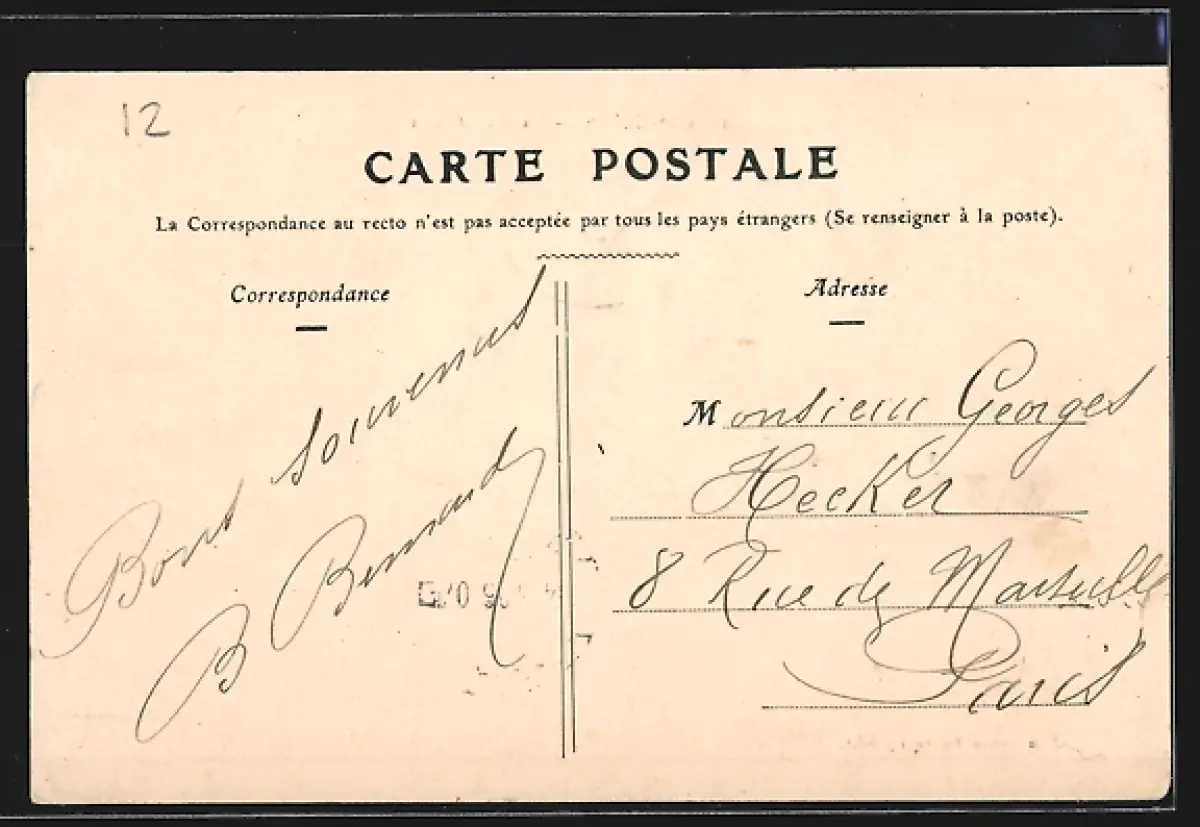 12
CARTE POSTALE
La Correspondance au recto n'est pas acceptée par tous les pays étrangers (Se renseigner à la poste).
Correspondance
Bons souvenirs
B Bernard
Adresse
Monsieur Georges
Hecker
8 Rue de Marseille
Paris